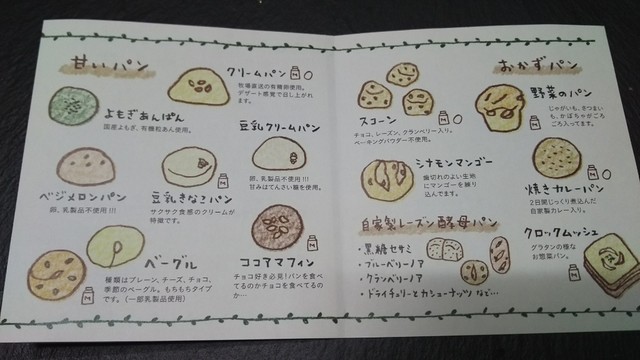 甘いパン
クリームパン
牧場直送の有精卵使用。
デザート感覚で召し上がれ
ます。
よもぎあんぱん
国産よもぎ、有機粒あん使用。
豆乳クリームパン
卵、乳製品不使用!!!
甘みはてんさい糖を使用。
ベジメロンパン
卵、乳製品不使用!!!
豆乳きなこパン
サクサク食感のクリームが
特徴です。
ベーグル
種類はプレーン、チーズ、チョコ、
季節のベーグル。もちもちタイプ
です。(一部乳製品使用)
ココアマフィン
チョコ好き必見!パンを食べ
てるのかチョコを食べてるの
か…
おかずパン
スコーン
チョコ、レーズン、クランベリー入り。
ベーキングパウダー不使用。
野菜のパン
じゃがいも、さつまい
も、かぼちゃがごろ
ごろ入ってます。
シナモンマンゴー
歯切れのよい生地
にマンゴーを練り
込んでます。
焼きカレーパン
2日間じっくり煮込んだ
自家製カレー入り。
自家製レーズン酵母パン
・黒糖セサミ
・ブルーベリーノア
・クランベリーノア
・ドライチェリーとカシューナッツ など…
クロックムッシュ
グラタンの様な
お惣菜パン。